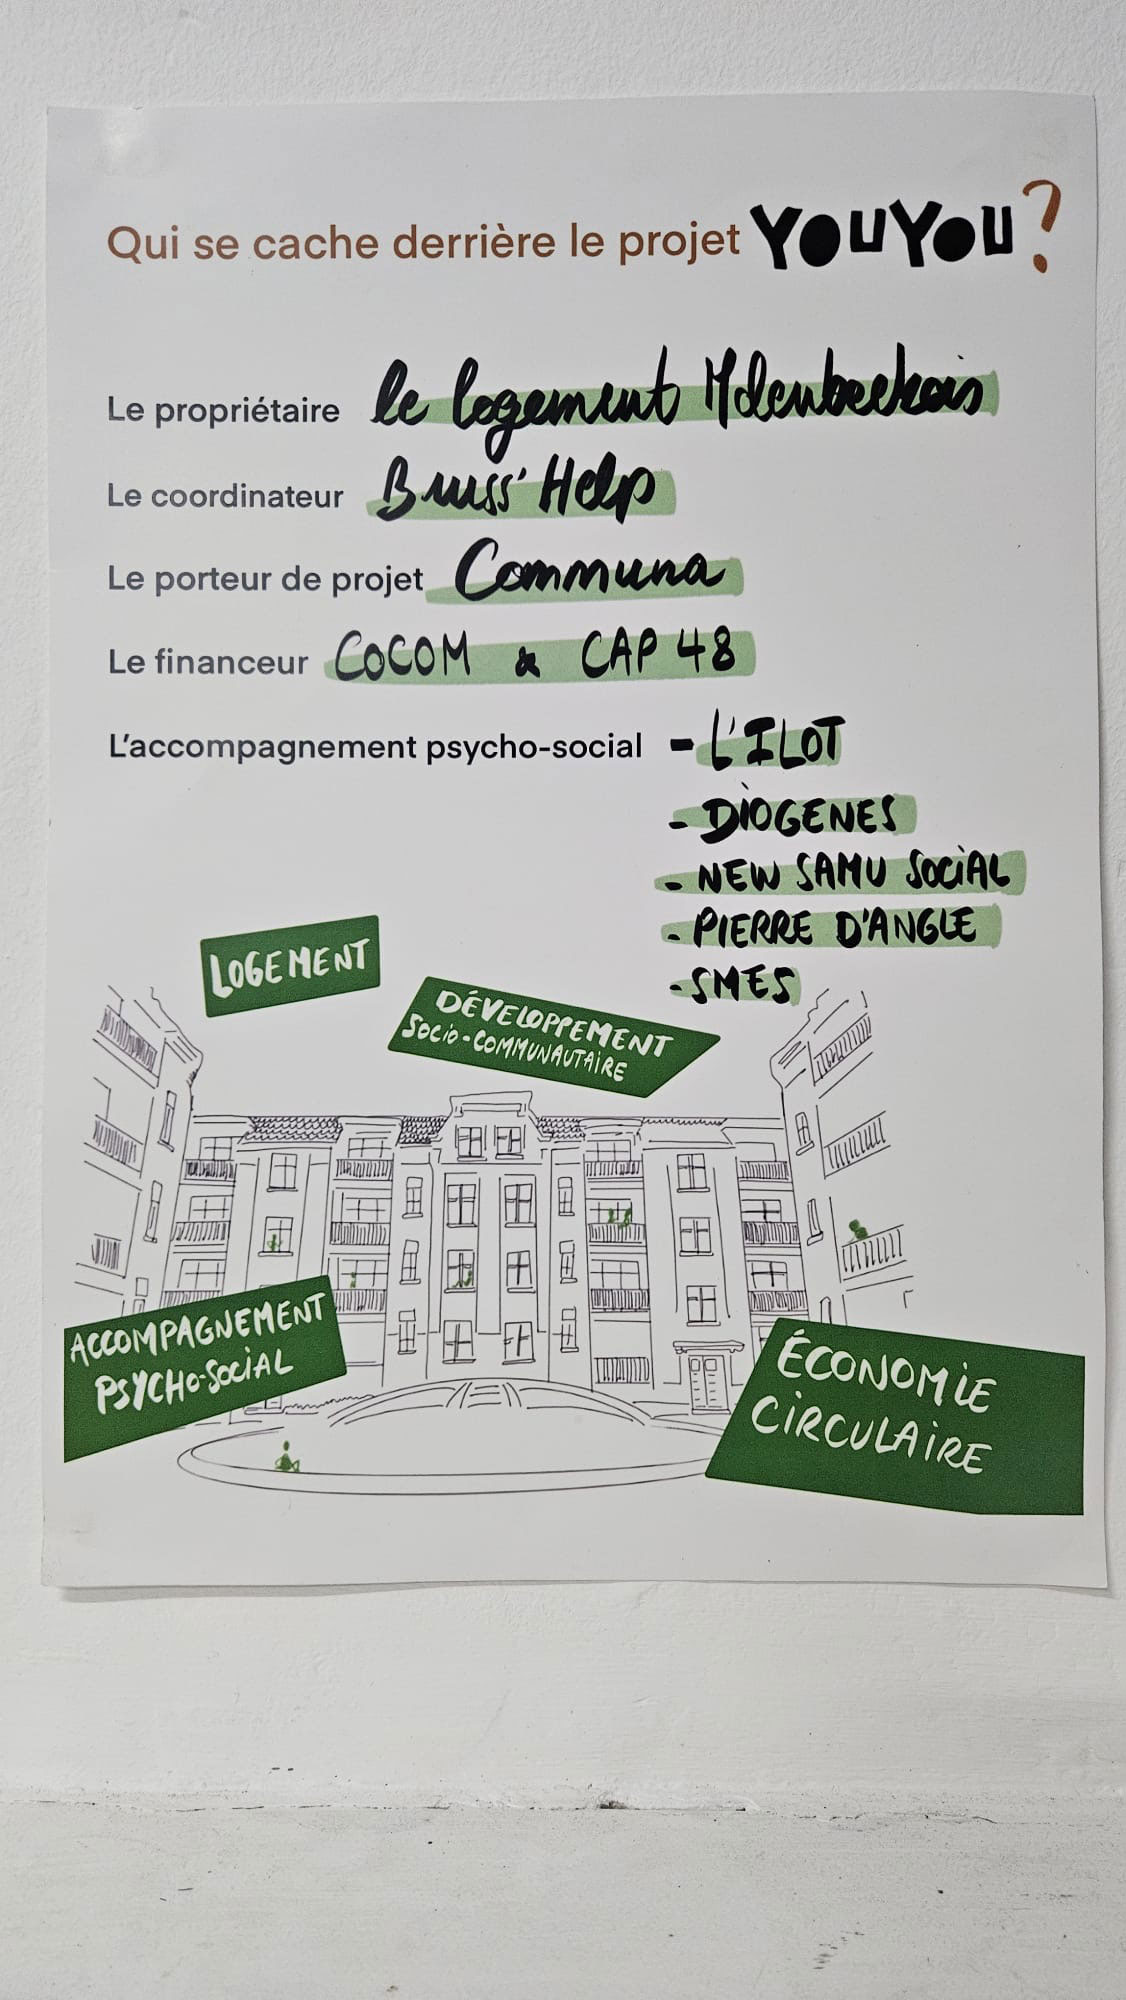 Qui se cache derrière le projet YOUYOU?
Le propriétaire le logement Molenbeekois
Le coordinateur Bruss'Help
Le porteur de projet Communa
Le financeur COCOM & CAP 48
L'accompagnement psycho-social - L'ILOT
- DIOGENES
- NEW SAMU SOCIAL
- PIERRE D'ANGLE
- SMES
LOGEMENT
DÉVELOPPEMENT
SOCIO-COMMUNAUTAIRE
ACCOMPAGNEMENT
PSYCHO-SOCIAL
ÉCONOMIE
CIRCULAIRE